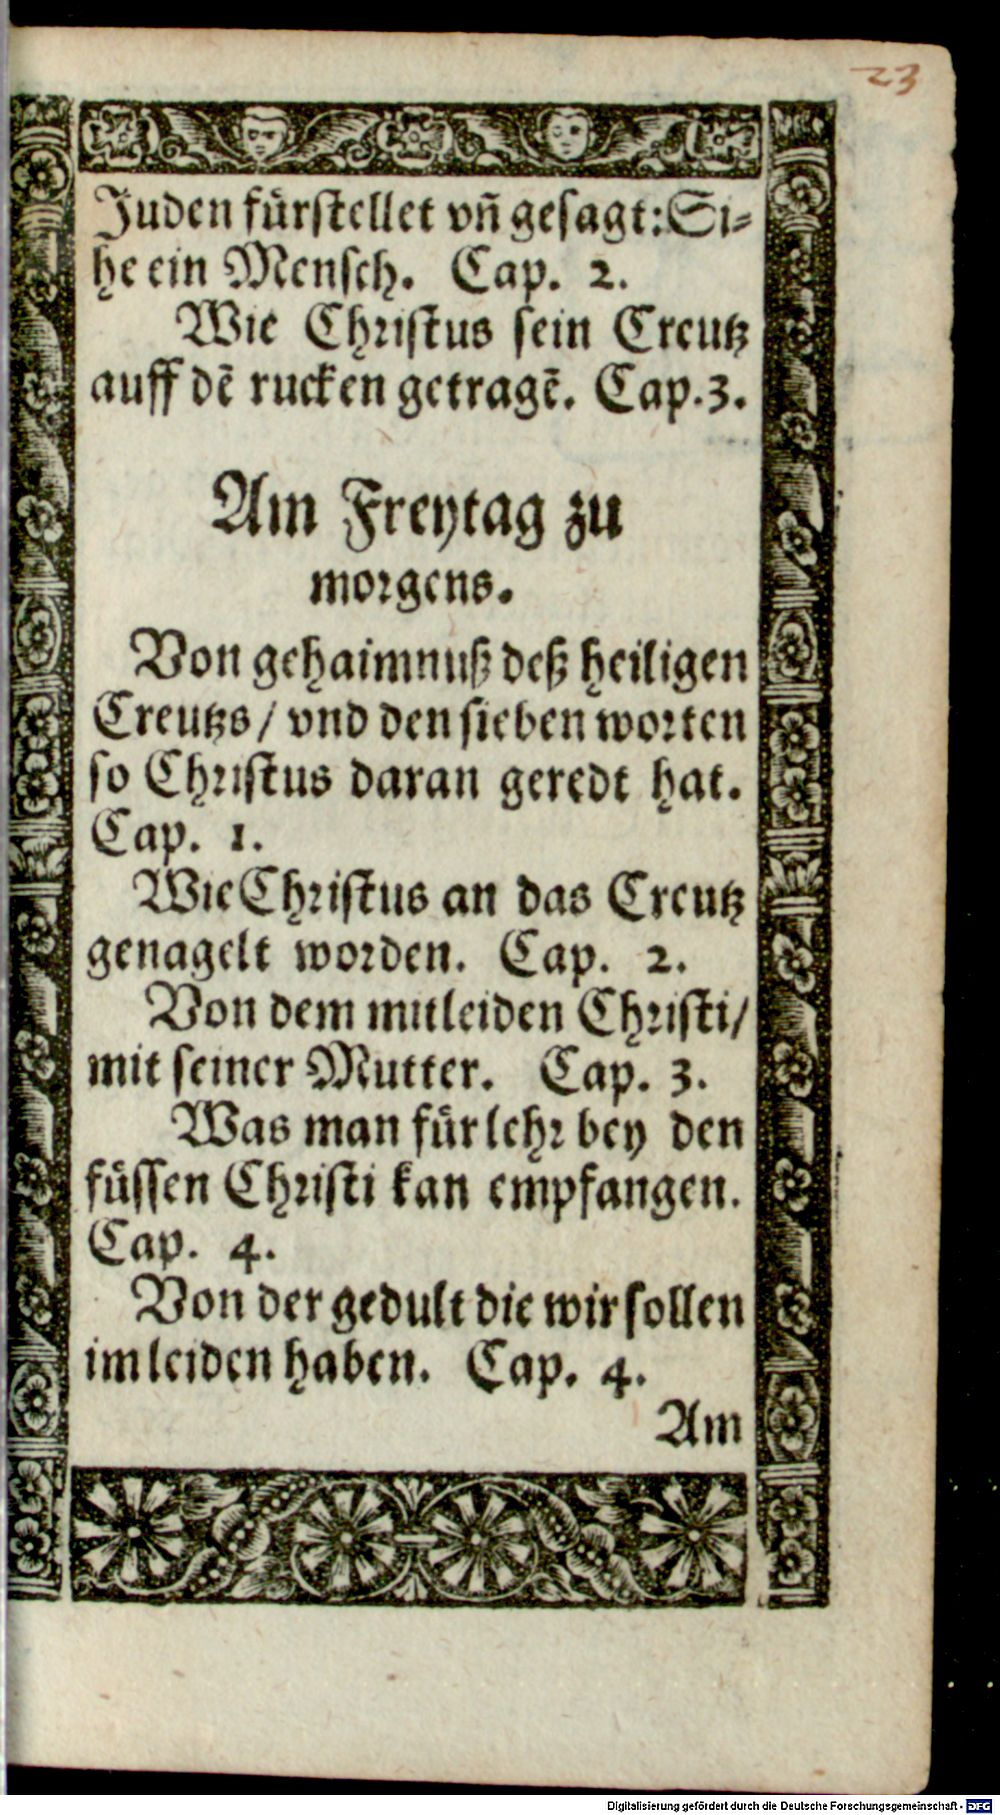 23
Juden fürstellet vñ gesagt: Si-
he ein Mensch. Cap. 2.
Wie Christus sein Creutz
auff dẽ rucken getragẽ. Cap. 3.
Am Freytag zu
morgens.
Von gehaimnuß deß heiligen
Creutzs / vnd den sieben worten
so Christus daran geredt hat.
Cap. 1.
Wie Christus an das Creutz
genagelt worden. Cap. 2.
Von dem mitleiden Christi /
mit seiner Mutter. Cap. 3.
Was man für lehr bey den
füssen Christi kan empfangen.
Cap. 4.
Von der gedult die wir sollen
im leiden haben. Cap. 4.
Am
Digitalisierung gefördert durch die Deutsche Forschungsgemeinschaft - DFG